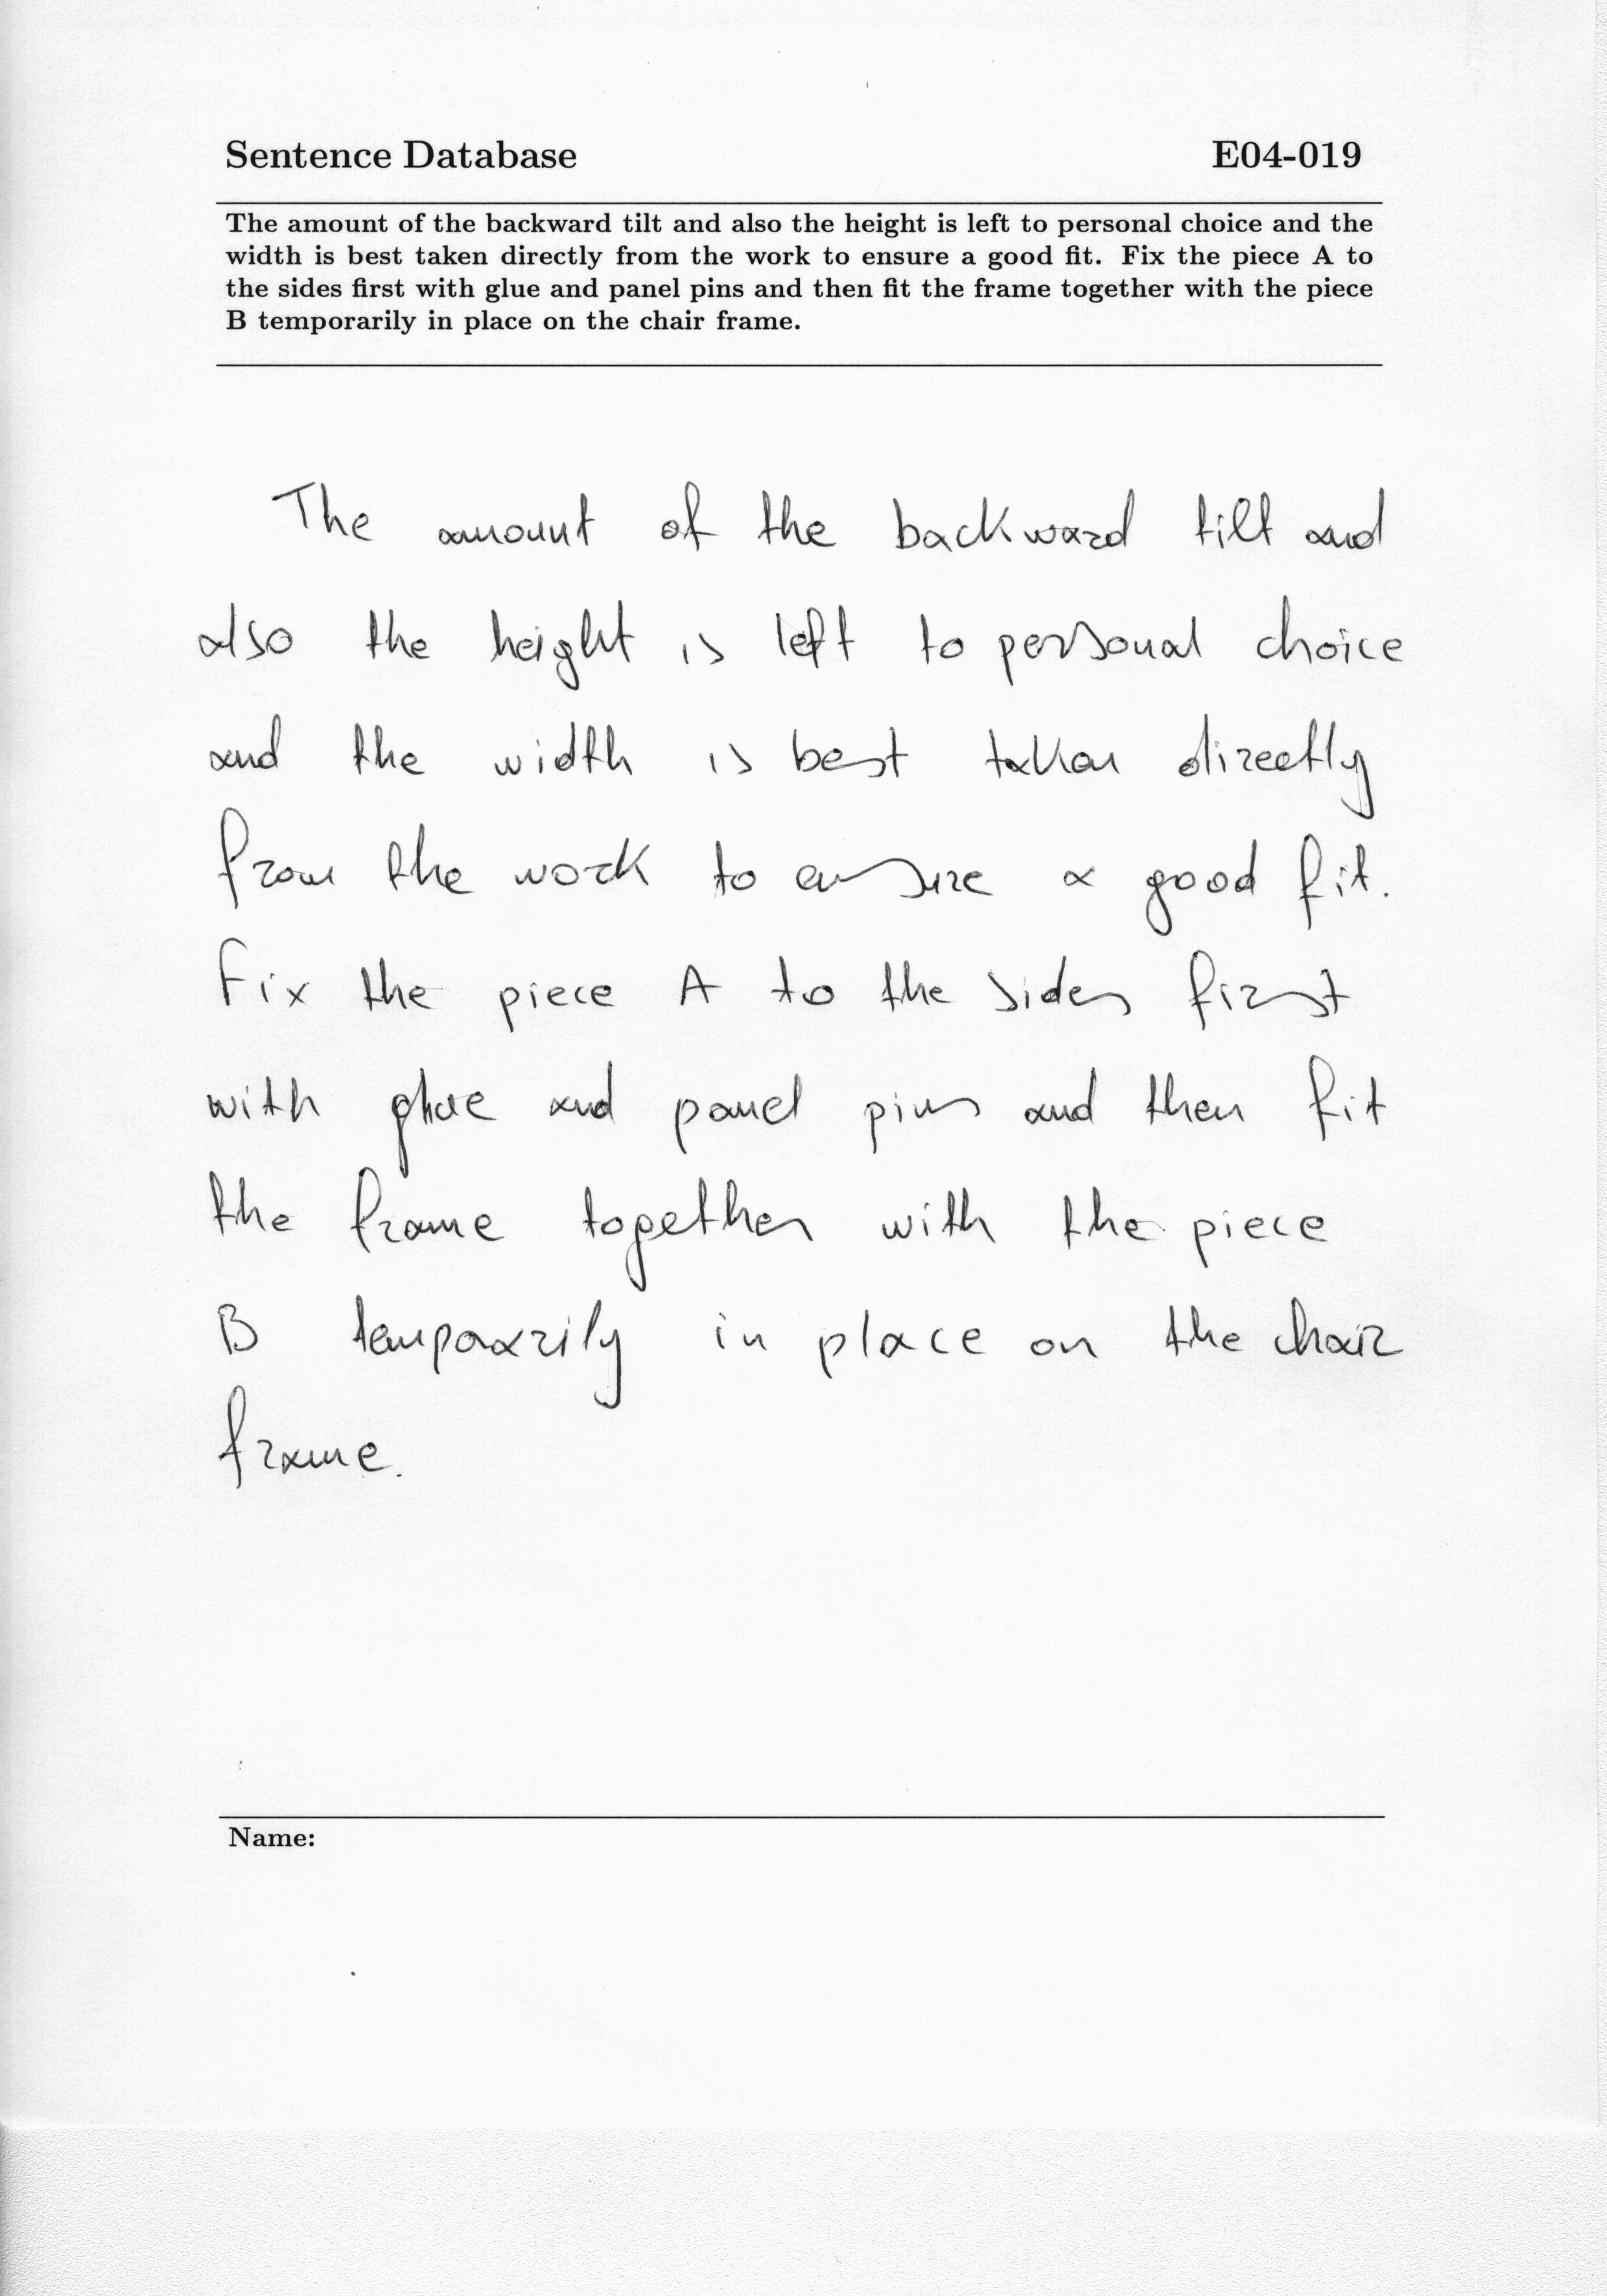 Sentence Database E04-019
The amount of the backward tilt and also the height is left to personal choice and the
width is best taken directly from the work to ensure a good fit. Fix the piece A to
the sides first with glue and panel pins and then fit the frame together with the piece
B temporarily in place on the chair frame.
The amount of the backward tilt and
also the height is left to personal choice
and the width is best taken directly
from the work to ensure a good fit.
Fix the piece A to the sides first
with glue and panel pins and then fit
the frame together with the piece
B tempoarily in place on the chair
frame.
Name: